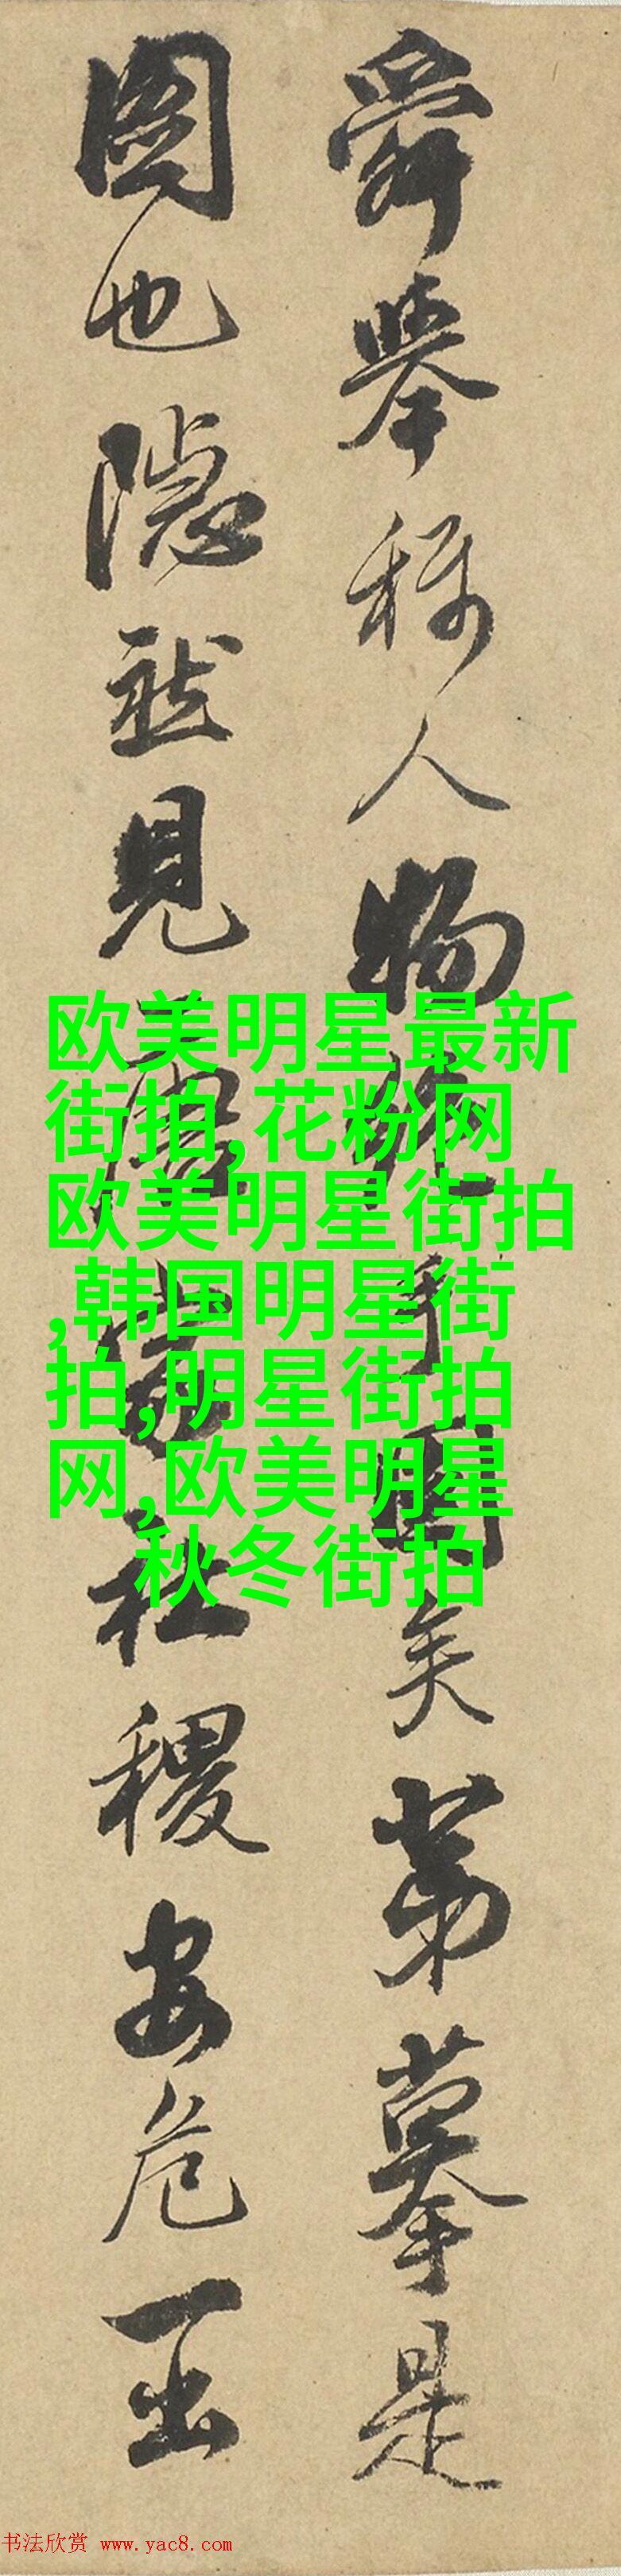 舜舉稱人物錚手國矣茀摹是
圖也隱然見唐家社稷安危一出
欧美明星最新
街拍,花粉网
欧美明星街拍
,韩国明星街
拍,明星街拍
网,欧美明星
秋冬街拍
书法欣赏 www.yac8.com